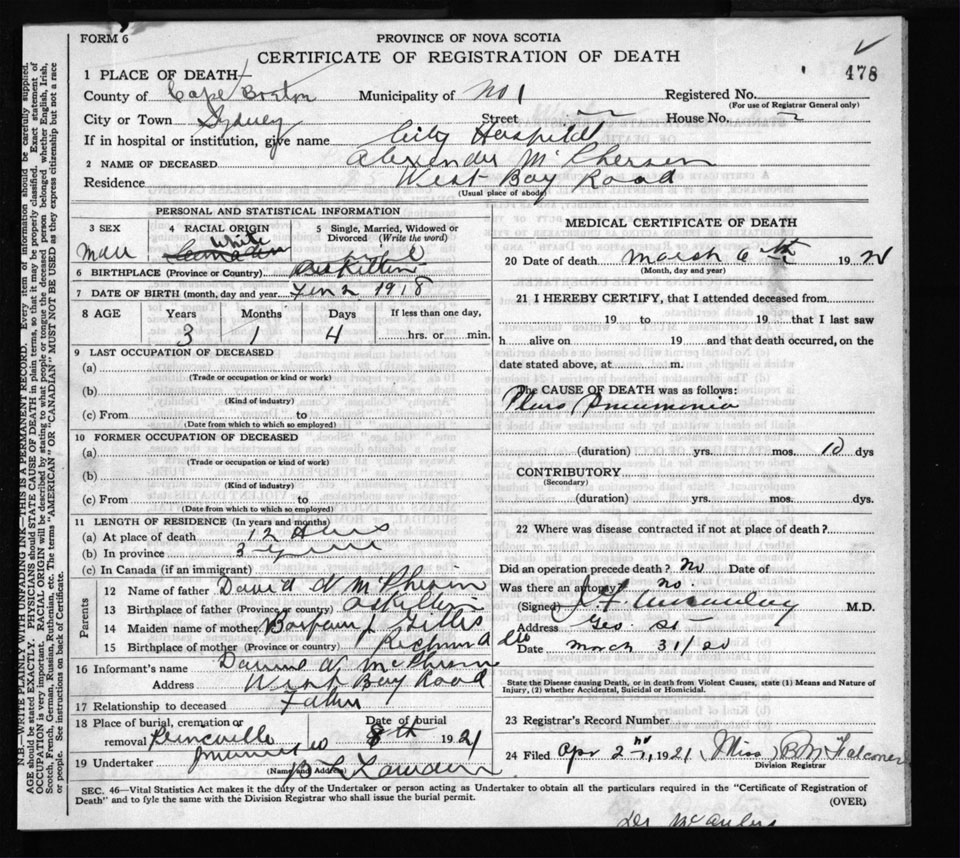 FORM 6
PROVINCE OF NOVA SCOTIA
CERTIFICATE OF REGISTRATION OF DEATH
478
1 PLACE OF DEATH—
County of Cape Breton Municipality of No 1 Registered No.
(For use of Registrar General only)
City or Town Sydney Street House No.
If in hospital or institution, give name City Hospital
2 NAME OF DECEASED Alexander McPherson
Residence West Bay Road
(Usual place of abode)
PERSONAL AND STATISTICAL INFORMATION
3 SEX 4 RACIAL ORIGIN 5 Single, Married, Widowed or Divorced (Write the word)
Male White
6 BIRTHPLACE (Province or Country)
7 DATE OF BIRTH (month, day and year) 2 1918
8 AGE Years Months Days If less than one day,
3 1 4 hrs. or min.
9 LAST OCCUPATION OF DECEASED
(a)
(Trade or occupation or kind or work)
(b)
(Kind of industry)
(c) From to
(Date from which to which so employed)
10 FORMER OCCUPATION OF DECEASED
(a)
(Trade or occupation or kind or work)
(b)
(Kind of industry)
(c) From to
(Date from which to which so employed)
11 LENGTH OF RESIDENCE (In years and months)
(a) At place of death 12
(b) In province 3
(c) In Canada (if an immigrant)
Parents
12 Name of father David N McPherson
13 Birthplace of father (Province or country)
14 Maiden name of mother Gillis
15 Birthplace of mother (Province or country) Richmond
16 Informant's name N McPherson
Address West Bay Road
17 Relationship to deceased Father
18 Place of burial, cremation or removal Princeville
Date of burial
8th 1921
19 Undertaker
(Name and Address)
MEDICAL CERTIFICATE OF DEATH
20 Date of death March 6th 19
(Month, day and year)
21 I HEREBY CERTIFY, that I attended deceased from
19 to 19 that I last saw
h alive on 19 and that death occurred, on the
date stated above, at m.
The CAUSE OF DEATH was as follows:
Pneumonia
(duration) yrs. mos. 10 dys
CONTRIBUTORY
(Secondary)
(duration) yrs. mos. dys.
22 Where was disease contracted if not at place of death?
Did an operation precede death? No Date of
Was there an autopsy no.
(Signed) M.D.
Address Geo. St
Date March 31/20
State the Disease causing Death, or in death from Violent Causes, state (1) Means and Nature of
Injury, (2) whether Accidental, Suicidal or Homicidal.
23 Registrar's Record Number
24 Filed Apr 2nd, 1921 Miss B M Falconer
Division Registrar
SEC. 46—Vital Statistics Act makes it the duty of the Undertaker or person acting as Undertaker to obtain all the particulars required in the "Certificate of Registration of
Death" and to fyle the same with the Division Registrar who shall issue the burial permit.
(OVER)
N.B.—WRITE PLAINLY WITH UNFADING INK—THIS IS A PERMANENT RECORD. Every item of information should be carefully supplied.
AGE should be stated EXACTLY. PHYSICIANS should STATE CAUSE OF DEATH in plain terms, so that it may be properly classified. Exact statement of
OCCUPATION is very important. RACIAL ORIGIN will be described by stating to what people or tongue the deceased person belonged whether English, Irish,
Scotch, French, German, Russian, Ruthenian, etc. The terms "AMERICAN" OR "CANADIAN" MUST NOT BE USED as they express citizenship but not a race
or people. See instructions on back of Certificate.